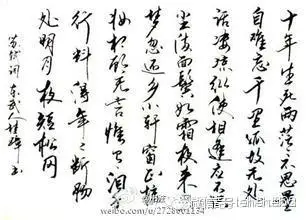 十年生死两茫々不思量
自难忘千里孤坟无处
话凄凉纵使相逢应不
尘满面鬓如霜夜来
梦忽还乡小轩窗正梳
妆相顾无言惟有泪
行料得年々断肠
处明月夜短松冈
苏轼词 东武人
weibo.com/u/2728601134